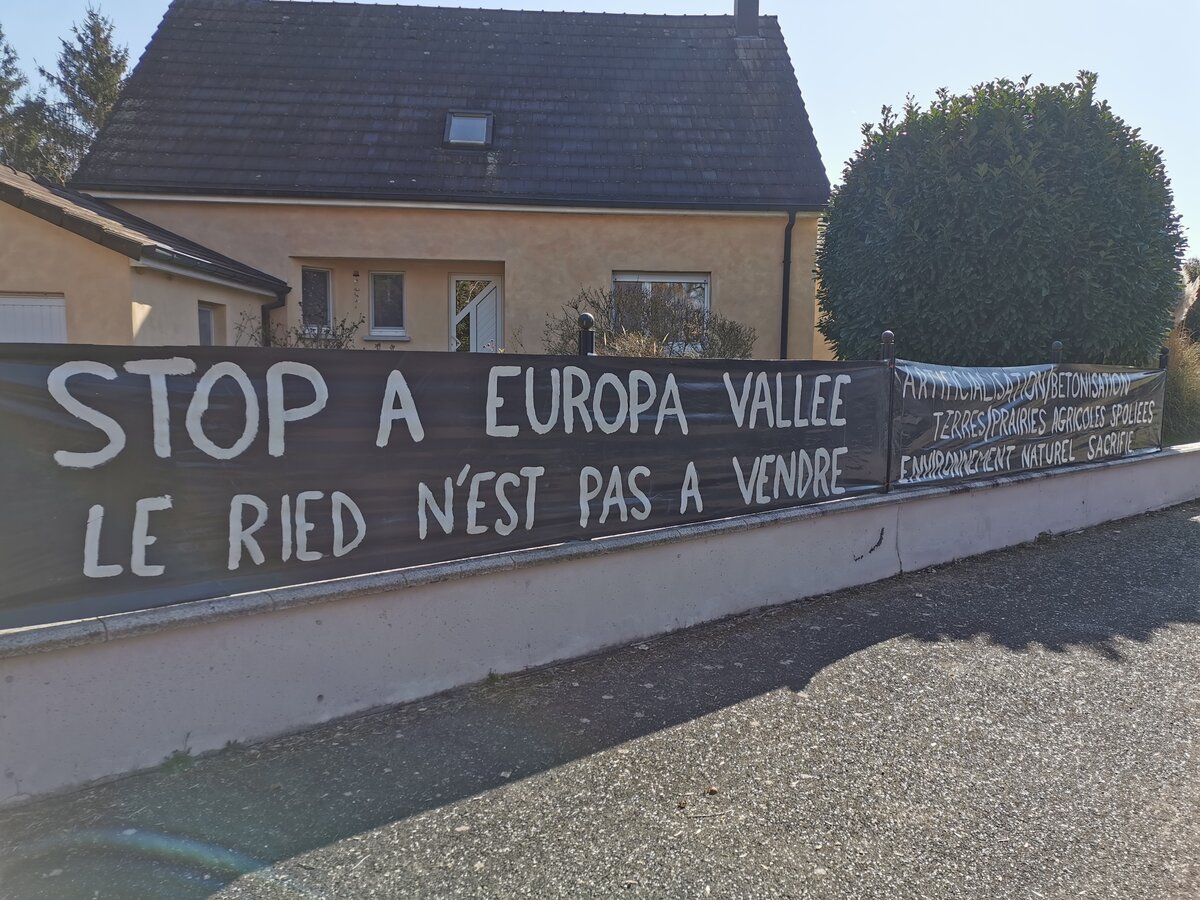 STOP A EUROPA VALLEE
LE RIED N'EST PAS A VENDRE
ARTIFICIALISATION/BETONISATION
TERRES/PRAIRIES AGRICOLES SPOLIEES
ENVIRONNEMENT NATUREL SACRIFIE